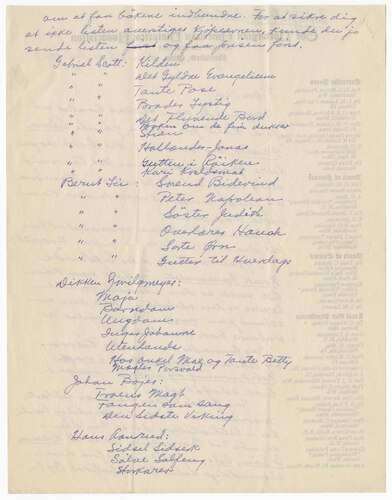 om at faa bøkene indbundne. For at sikre dig
at ikke listen overstiger kjøpeevnen, kunde du jo
sende listen og faa prisen først.
Gabriel Scott: Kilden
" " Det Gyldne Evangelium
" " Tante Pose
" " Brødør Lystig
" " Det Flyvende Bord
" " Boken om de fire dukkar
" " Stien
" " Hollander-Jonas
" " Gutten i Røiken
" " Kari Kveldsmat
Bernt Lie: Svend Bidevind
" " Peter Napoleon
" " Søster Judith
" " Overlærer Hauch
" " Sorte Ørn
" " Gutter til Hverdags
Dikken Zwilgmeyer:
Maja
Barndom
Ungdom
Inger Johanne
Utenlands
Hos onkel Max og Tante Betty
Mægler Porsvold
Johan Bojer:
Troens Magt
Fangen som sang
Den Sidste Viking
Hans Aanrud:
Sidsel Sidserk
Sølve Solfeng
Storkarer